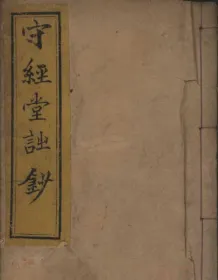 守經堂詩鈔